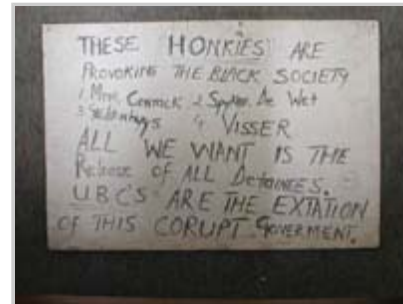 THESE HONKIES ARE
PROVOKING THE BLACK SOCIETY
1. Mnr. 2 Spyker. De Wet
3 4 VISSER
ALL WE WANT IS THE
Release of ALL Detainees.
U.B.C'S ARE THE EXTATION
OF THIS CORUPT. GOVERMENT.